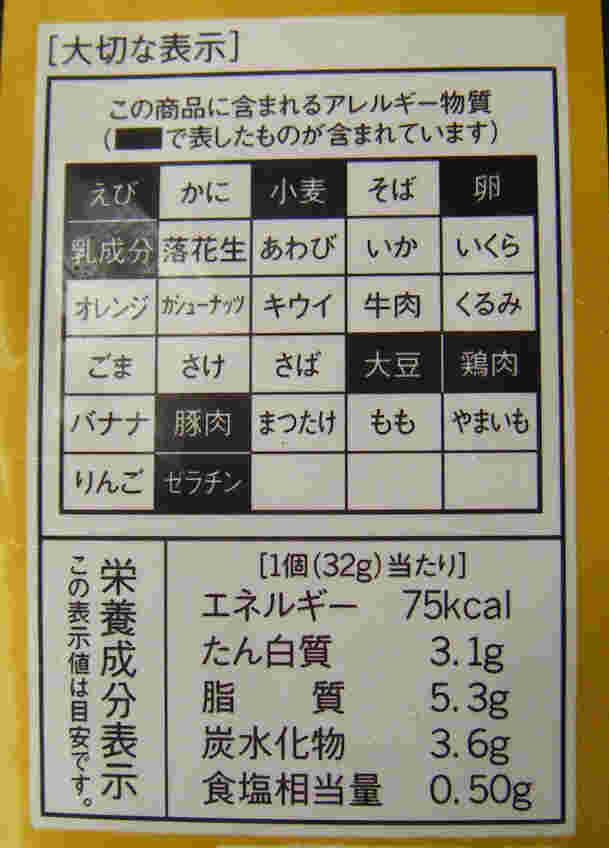 [大切な表示]
この商品に含まれるアレルギー物質
(■で表したものが含まれています)
えび かに 小麦 そば 卵
乳成分 落花生 あわび いか いくら
オレンジ カシューナッツ キウイ 牛肉 くるみ
ごま さけ さば 大豆 鶏肉
バナナ 豚肉 まつたけ もも やまいも
りんご ゼラチン
栄養成分表示
この表示値は目安です。
[1個(32g)当たり]
エネルギー 75kcal
たん白質 3.1g
脂質 5.3g
炭水化物 3.6g
食塩相当量 0.50g